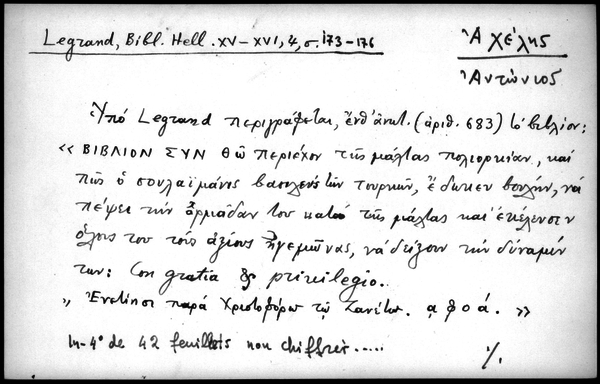 Legrand, Bibl. Hell. XV-XVI, 4, σ. 173-176
Ἀχέλης
Ἀντώνιος
Ὑπό Legrand περιγράφεται, ἔνθ' ἀνωτ. (ἀριθ. 683) τό βιβλίον:
«ΒΙΒΛΙΟΝ ΣΥΝ Θῶ περιέχον τῆς μάλτας πολιορκίαν, καί
πῶς ὁ σουλαϊμάνος βασιλεύς τῶν τουρκῶν, ἔδωκεν βουλήν, νά
πέψει τήν ἁρμάδαν του κατά τῆς μάλτας καί ἐκέλευσεν
ὅλους του τούς ἀξίους ἡγεμῶνας, νά δείξουν τήν δύναμίν
των: Con gratia & privilegio.
„ Ἐνετίησι παρά Χριστοφόρω τῷ Ζανέτω. αφοά. »
In-4° de 42 feuillets non chiffrés.....
%.